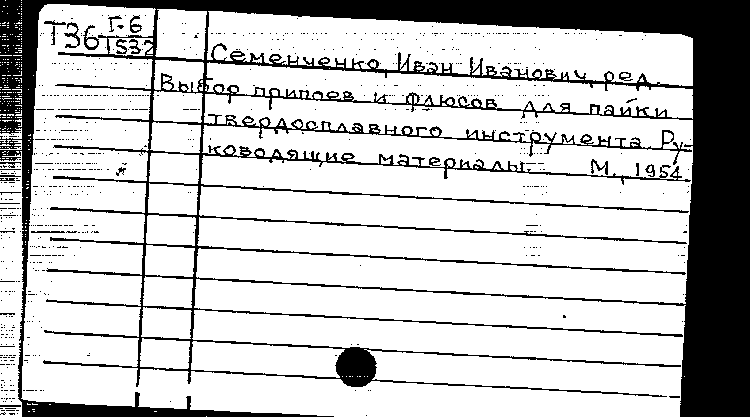 Т36 Г-6
1532
Семенченко, Иван Иванович, ред.
Выбор припоев и флюсов для пайки
твердосплавного инструмента. Ру=
ководящие материалы. М., 1954.